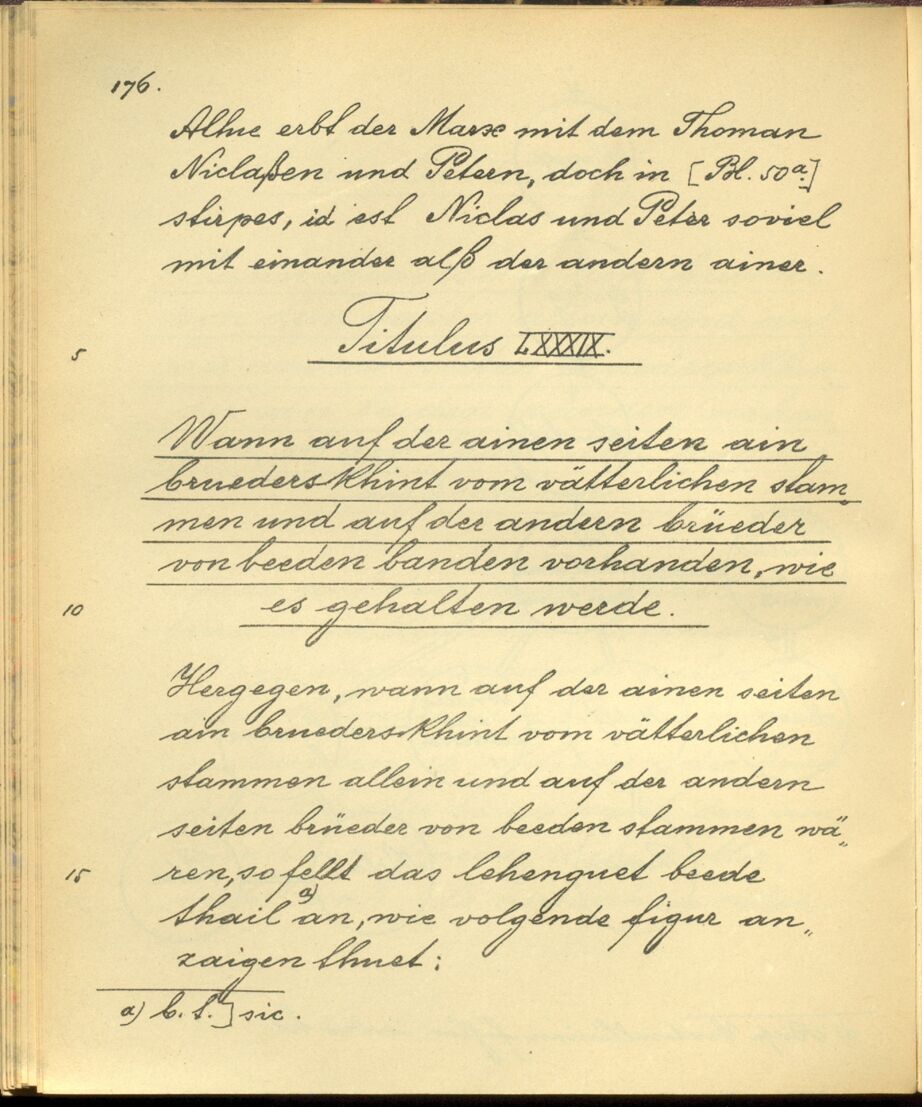 176.
Allhie erbt der Marx mit dem Thoman
Niclaßen und Petern, doch in [Bl. 50a.]
stirpes, id est Niclas und Peter soviel
mit einander alß der andern ainer.
5
Titulus LXXXIX.
Wann auf der ainen seiten ain
brueders Khint vom vätterlichen stam„
men und auf der andern brüeder
von beeden banden vorhanden, wie
10
es gehalten werde.
Hergegen, wann auf der ainen seiten
ain brueders Khint vom vätterlichen
stammen allein und auf der andern
seiten brüeder von beeden stammen wä„
15
ren, so fellt das lehenguet beede
thail a) an, wie volgende figur an„
zaigen thuet:
a) b. t.] sic.